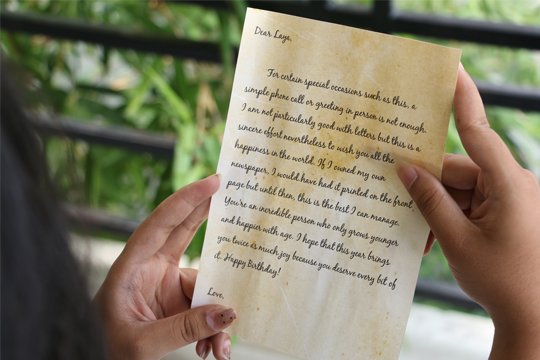 Dear Laya,
For certain special occasions such as this, a
simple phone call or greeting in person is not enough.
I am not particularly good with letters but this is a
sincere effort nevertheless to wish you all the
happiness in the world. If I owned my own
newspaper, I would have had it printed on the front
page but until then, this is the best I can manage.
You're an incredible person who only grows younger
and happier with age. I hope that this year brings
you twice as much joy because you deserve every bit of
it. Happy Birthday!
Love,